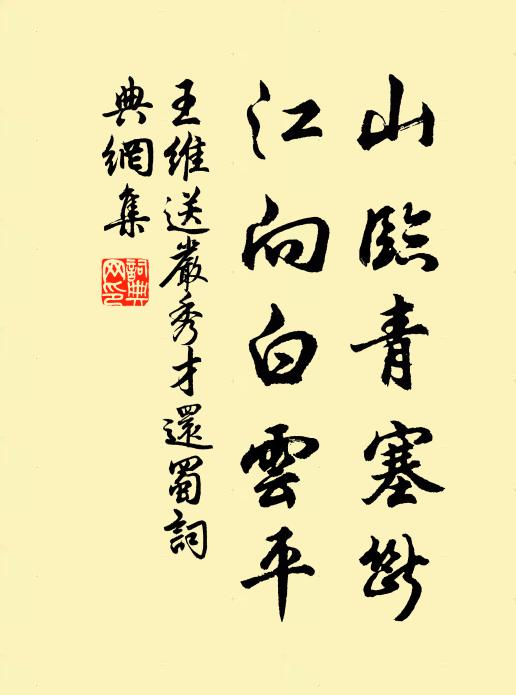 山臨青塞斷
江向白雲平
王維送嚴秀才還蜀詞
典網集
詞典
网印